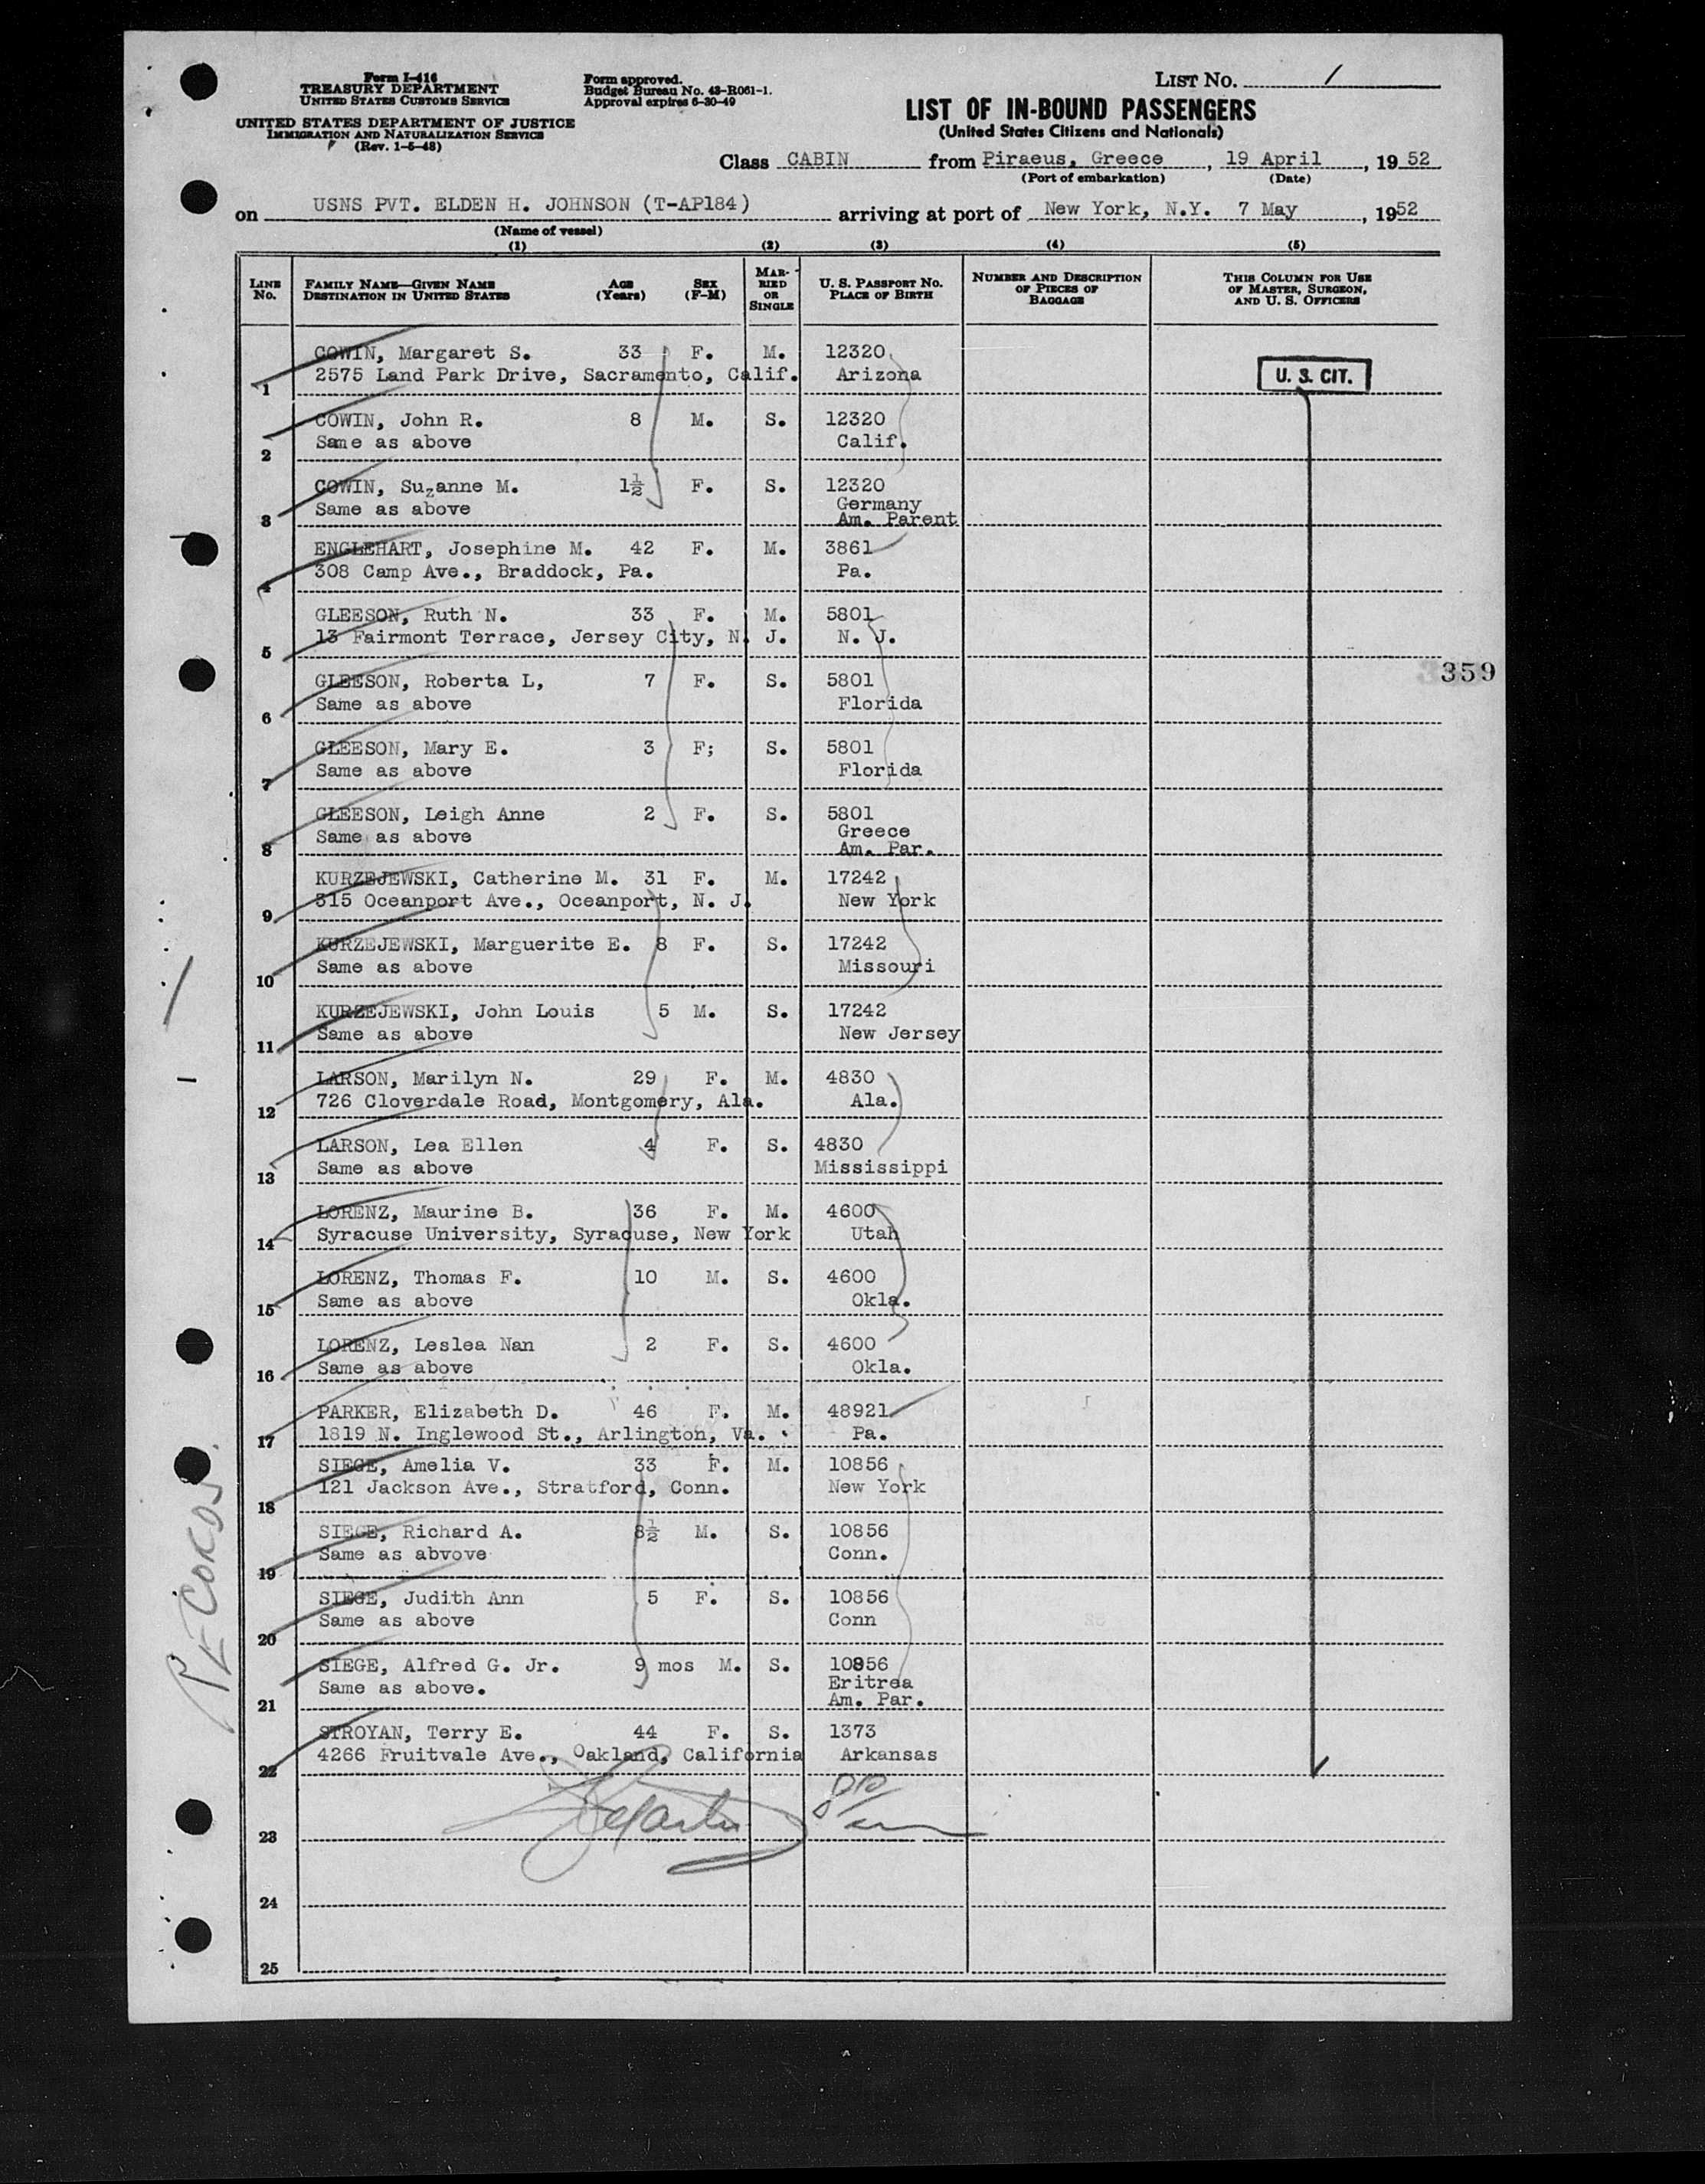 Form I-416
TREASURY DEPARTMENT
UNITED STATES CUSTOMS SERVICE
UNITED STATES DEPARTMENT OF JUSTICE
IMMIGRATION AND NATURALIZATION SERVICE
(Rev. 1-5-48)
Form approved.
Budget Bureau No. 43-R061-1.
Approval expires 6-30-49
LIST No. 1
LIST OF IN-BOUND PASSENGERS
(United States Citizens and Nationals)
Class CABIN from Piraeus, Greece, 19 April, 19 52
(Port of embarkation) (Date)
on USNS PVT. ELDEN H. JOHNSON (T-AP184) arriving at port of New York, N.Y. 7 May, 1952
(Name of vessel)
(1) (2) (3) (4) (5)
LINE No. FAMILY NAME—GIVEN NAME DESTINATION IN UNITED STATES AGE (Years) SEX (F-M) MARRIED OR SINGLE U. S. PASSPORT NO. PLACE OF BIRTH NUMBER AND DESCRIPTION OF PIECES OF BAGGAGE THIS COLUMN FOR USE OF MASTER, SURGEON, AND U. S. OFFICERS
COWIN, Margaret S. 33 F. M. 12320
1 2575 Land Park Drive, Sacramento, Calif. Arizona U. S. CIT.
COWIN, John R. 8 M. S. 12320
2 Same as above Calif.
COWIN, Suzanne M. 1½ F. S. 12320
3 Same as above Germany
Am. Parent
ENGLEHART, Josephine M. 42 F. M. 3861
4 308 Camp Ave., Braddock, Pa. Pa.
GLEESON, Ruth N. 33 F. M. 5801
5 13 Fairmont Terrace, Jersey City, N. J. N. J.
GLEESON, Roberta L, 7 F. S. 5801
6 Same as above Florida
GLEESON, Mary E. 3 F; S. 5801
7 Same as above Florida
359
GLEESON, Leigh Anne 2 F. S. 5801
8 Same as above Greece
Am. Par.
KURZEJEWSKI, Catherine M. 31 F. M. 17242
9 315 Oceanport Ave., Oceanport, N. J. New York
KURZEJEWSKI, Marguerite E. 8 F. S. 17242
10 Same as above Missouri
KURZEJEWSKI, John Louis 5 M. S. 17242
11 Same as above New Jersey
LARSON, Marilyn N. 29 F. M. 4830
12 726 Cloverdale Road, Montgomery, Ala. Ala.
LARSON, Lea Ellen 4 F. S. 4830
13 Same as above Mississippi
LORENZ, Maurine B. 36 F. M. 4600
14 Syracuse University, Syracuse, New York Utah
LORENZ, Thomas F. 10 M. S. 4600
15 Same as above Okla.
LORENZ, Leslea Nan 2 F. S. 4600
16 Same as above Okla.
PARKER, Elizabeth D. 46 F. M. 48921
17 1819 N. Inglewood St., Arlington, Va. Pa.
SIEGE, Amelia V. 33 F. M. 10856
18 121 Jackson Ave., Stratford, Conn. New York
SIEGE, Richard A. 8½ M. S. 10856
19 Same as abvove Conn.
SIEGE, Judith Ann 5 F. S. 10856
20 Same as above Conn
SIEGE, Alfred G. Jr. 9 mos M. S. 10856
21 Same as above. Eritrea
Am. Par.
STROYAN, Terry E. 44 F. S. 1373
22 4266 Fruitvale Ave., Oakland, California Arkansas
23
24
25
RECORDS